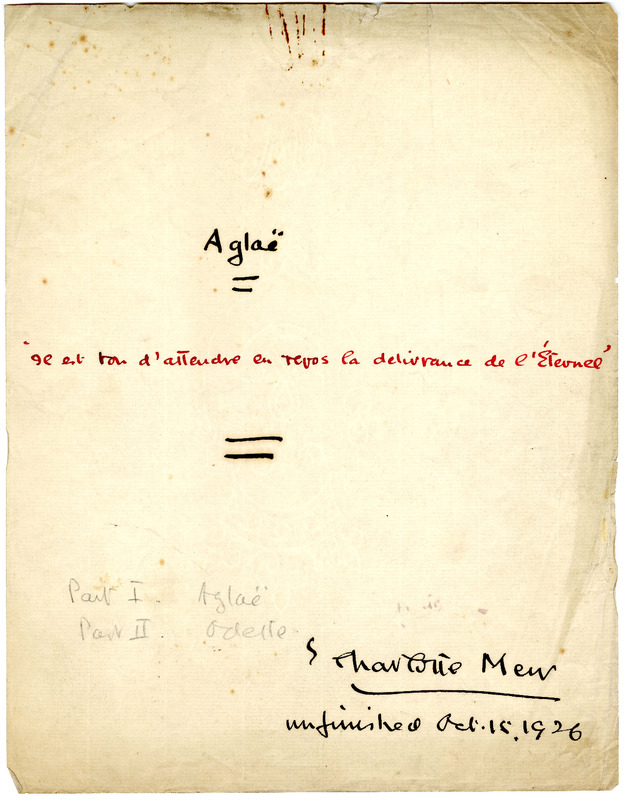 Aglaë
'Il est bon d'attendre en repos la delivrance de l'Éternel'
Part I. Aglaë
Part II. Odette.
Charlotte Mew
unfinished Oct. 15, 1926